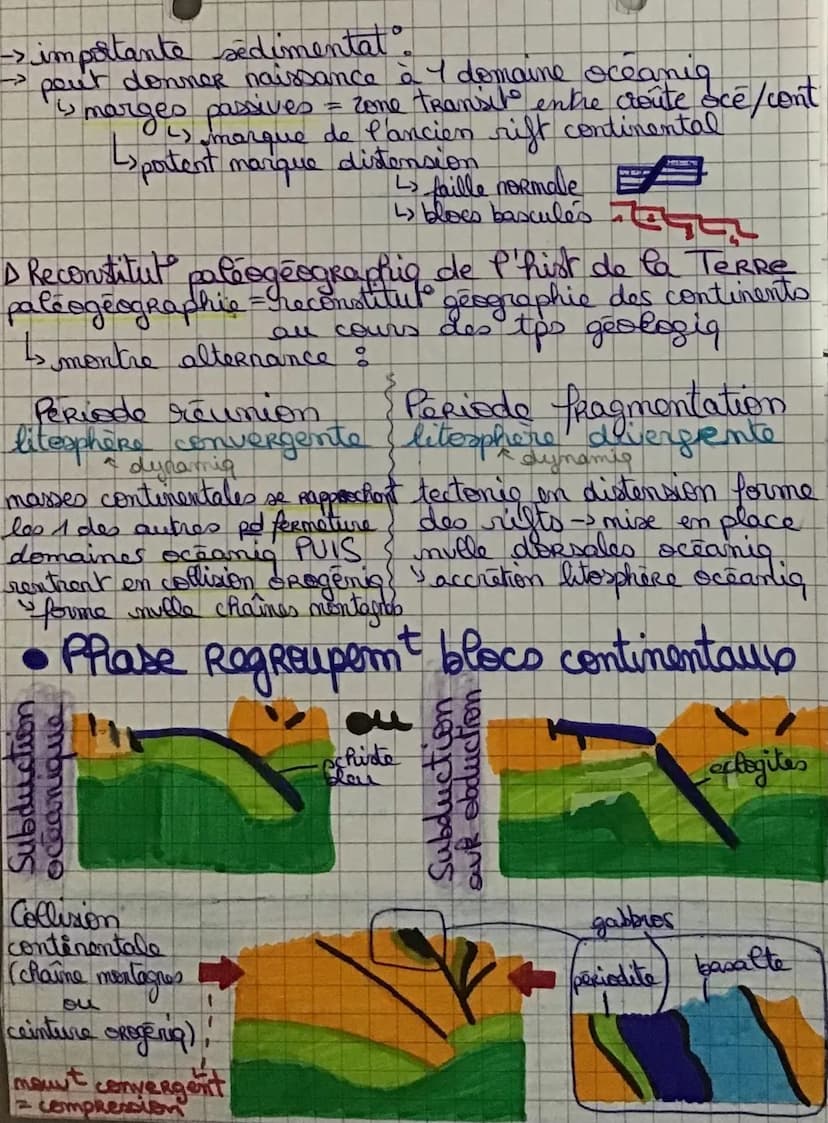 → importante sédimentat°.
→ peut donner naissance à 1 domaine océaniq
↳ marges passives = zone transit° entre croûte océ/cont
↳ marque de l'ancien rift continental
↳ portent marque distension
↳ faille normale
↳ blocs basculés
Reconstitut° paléogéographiq de l'hist de la TERRE
paléogéographie = reconstitut° géographie des continents
au cours des tps géologiq
↳ montre alternance :
Période réunion
litosphère convergente
↖ dynamiq
masses continentales se rapprochont
les 1 des autres pd fermeture
domaines océaniq PUIS
rentront en collision orogéniq
↳ forme nvelle chaînes montagnes
Période fragmentation
litosphère divergente
↖ dynamiq
tectoniq en distension forme
des rifts → mise en place
nvelle dorsales océaniq
↳ accrétion litosphère océaniq
• Phase regroupemt blocs continentaux
Subduction
océanique
schiste
bleu
ou
Subduction
avk obduction
eclogites
Collision
continentale
(chaîne montagnes
ou
ceinture orogéniq)
mouvt convergent
= compression
gabbros
périodite
basalte